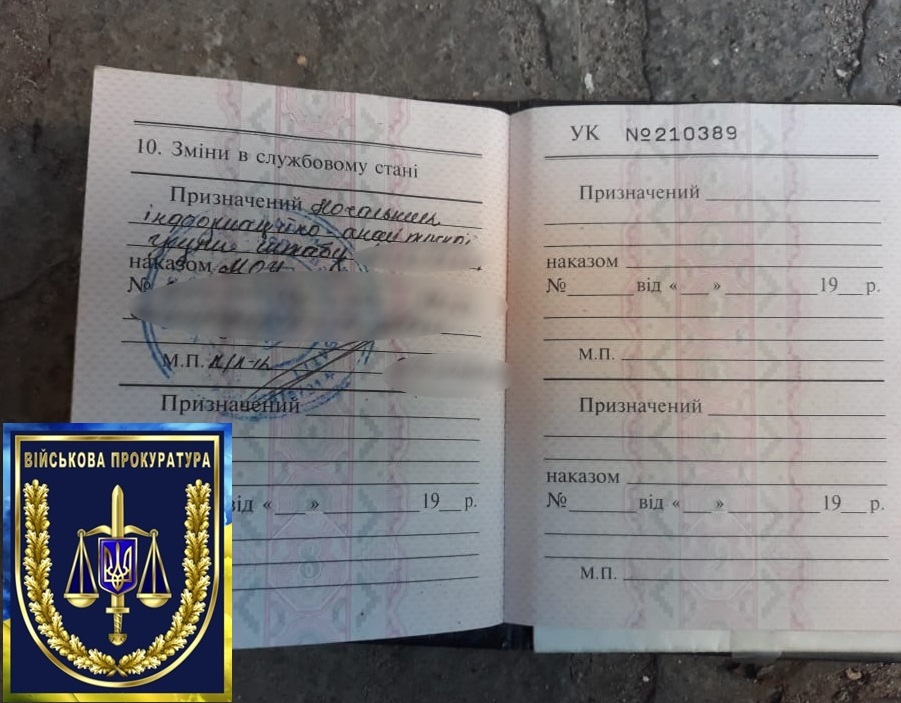 10. Зміни в службовому стані
Призначений Начальник
інформаційно-аналітичної
групи штабу
наказом МОУ
№
М.П. п/п-к
Призначений
від « » 19 р.
УК №210389
Призначений
наказом
№ від « » 19 р.
М.П.
Призначений
наказом
№ від « » 19 р.
М.П.
ВІЙСЬКОВА ПРОКУРАТУРА